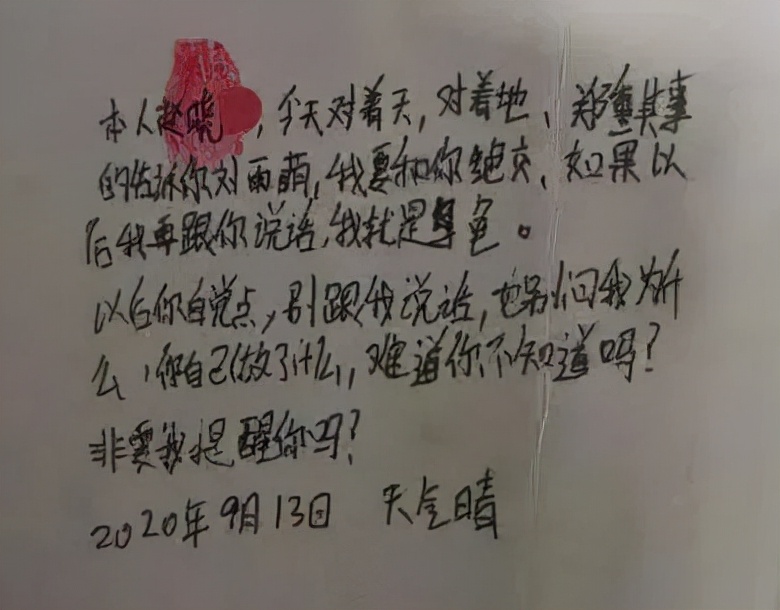 本人赵晓，今天对着天，对着地、郑重其事
的告诉你刘雨萌，我要和你绝交、如果以
后我再跟你说话，我就是龟。
以后你自觉点，别跟我说话，也别问我为什
么，你自己做了什么，难道你不知道吗？
非要我提醒你吗？
2020年9月13日 天气晴